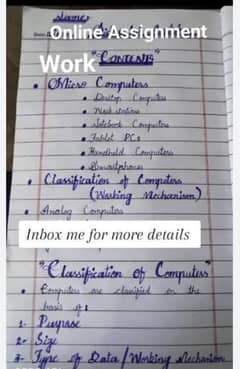 Name:
Online Assignment
Work
"Contents"
• Micro Computers
• Desktop Computers
• Work stations
• Notebook Computers
• Tablet PCs
• Handheld Computers
• Smartphones
• Classification of Computers
(Working Mechanism)
• Analog Computers
Inbox me for more details
"Classification of Computers"
• Computers are classified on the
basis of:
1- Purpose
2- Size
3- Type of Data/Working Mechanism